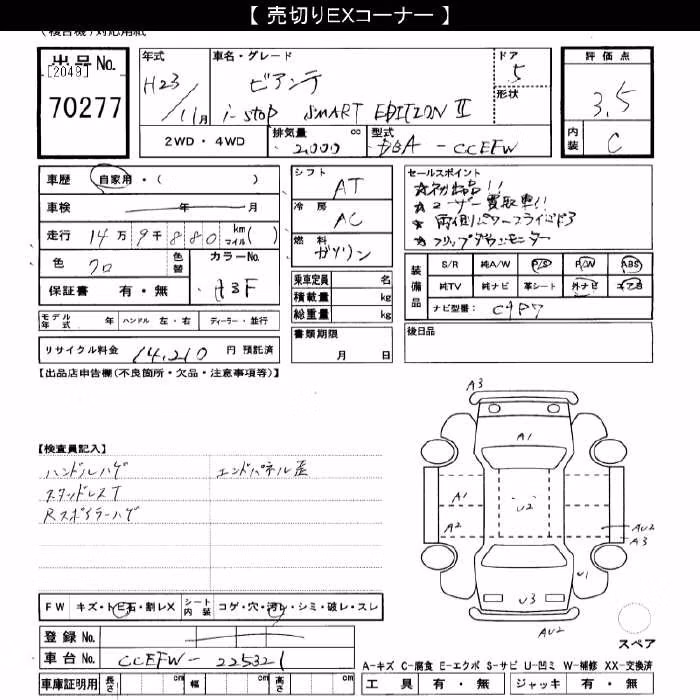 【 売切りEXコーナー 】
出品No.
[2049]
70277
年式 H23/11月
車名・グレード ビアンテ
i-stop SMART EDITION II
ドア 5
形状
評価点 3.5
内装 C
2WD・4WD
排気量 2,000 cc
型式 DBA - CCEFW
車歴 自家用・( )
車検 年 月
走行 14万 9千 880 km マイル( )
色 クロ 色替
カラーNo. A3F
保証書 有・無
モデル年式 年 ハンドル 左・右 ディーラー・並行
リサイクル料金 14,210 円 預託済
シフト AT
冷房 AC
燃料 ガソリン
乗車定員 名
積載量 kg
総重量 kg
書類期限
月 日
セールスポイント
☆初出品!!
☆ユーザー買取車!!
☆両側パワースライドドア
☆フリップダウンモニター
装備品
S/R 純A/W P/S P/W ABS
純TV 純ナビ 革シート 外ナビ エアB
ナビ型番:
後日品
【出品店申告欄(不良箇所・欠品・注意事項等)】
【検査員記入】
ハンドルハゲ エンドパネル歪
スタッドレスT
Rスポイラーハゲ
A3
A1
A1
A2
U2
AU2
A3
U1
U3
AU2
スペア
FW キズ・トビ石・割レX シート内装 コゲ・穴・汚レ・シミ・破レ・スレ
登録No.
車台No. CCEFW - 225321
車庫証明用 長さ cm 幅 cm 高さ cm
A-キズ C-腐食 E-エクボ S-サビ U-凹ミ W-補修 XX-交換済
工具 有・無 ジャッキ 有・無